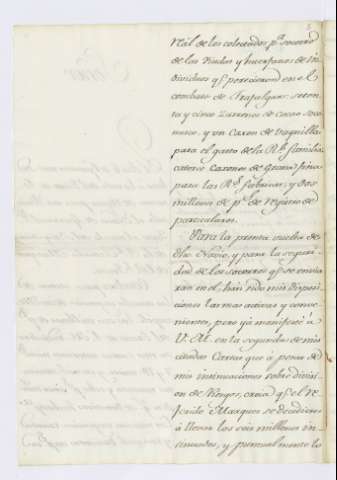 de las Viudas y huerfanos de In
dividuos q.e perecieron en el
combate de Trafalgar: seten
ta y cinco Zurrones de cacao Soco
nusco, y un Caxon de
para el gasto de la R.l familia
catorce Caxones de Grana fina
para las R.s fabricas, y dos
millones de p.s de registro de
particulares.
Para la pronta vuelta de
dho Navio, y para la seguri
dad de los socorros q.e se envia
ran en el, han sido mis disposi
ciones las mas activas y conve
nientes, pero ya manifesté á
V. M. en la segunda de mis
citadas Cartas que á pesar de
mis insinuaciones sobre divisi
on de Riesgos, creia q.e el re
ferido Marques se decidiera
á llevar los seis millones in
sinuados, y puntualmente lo